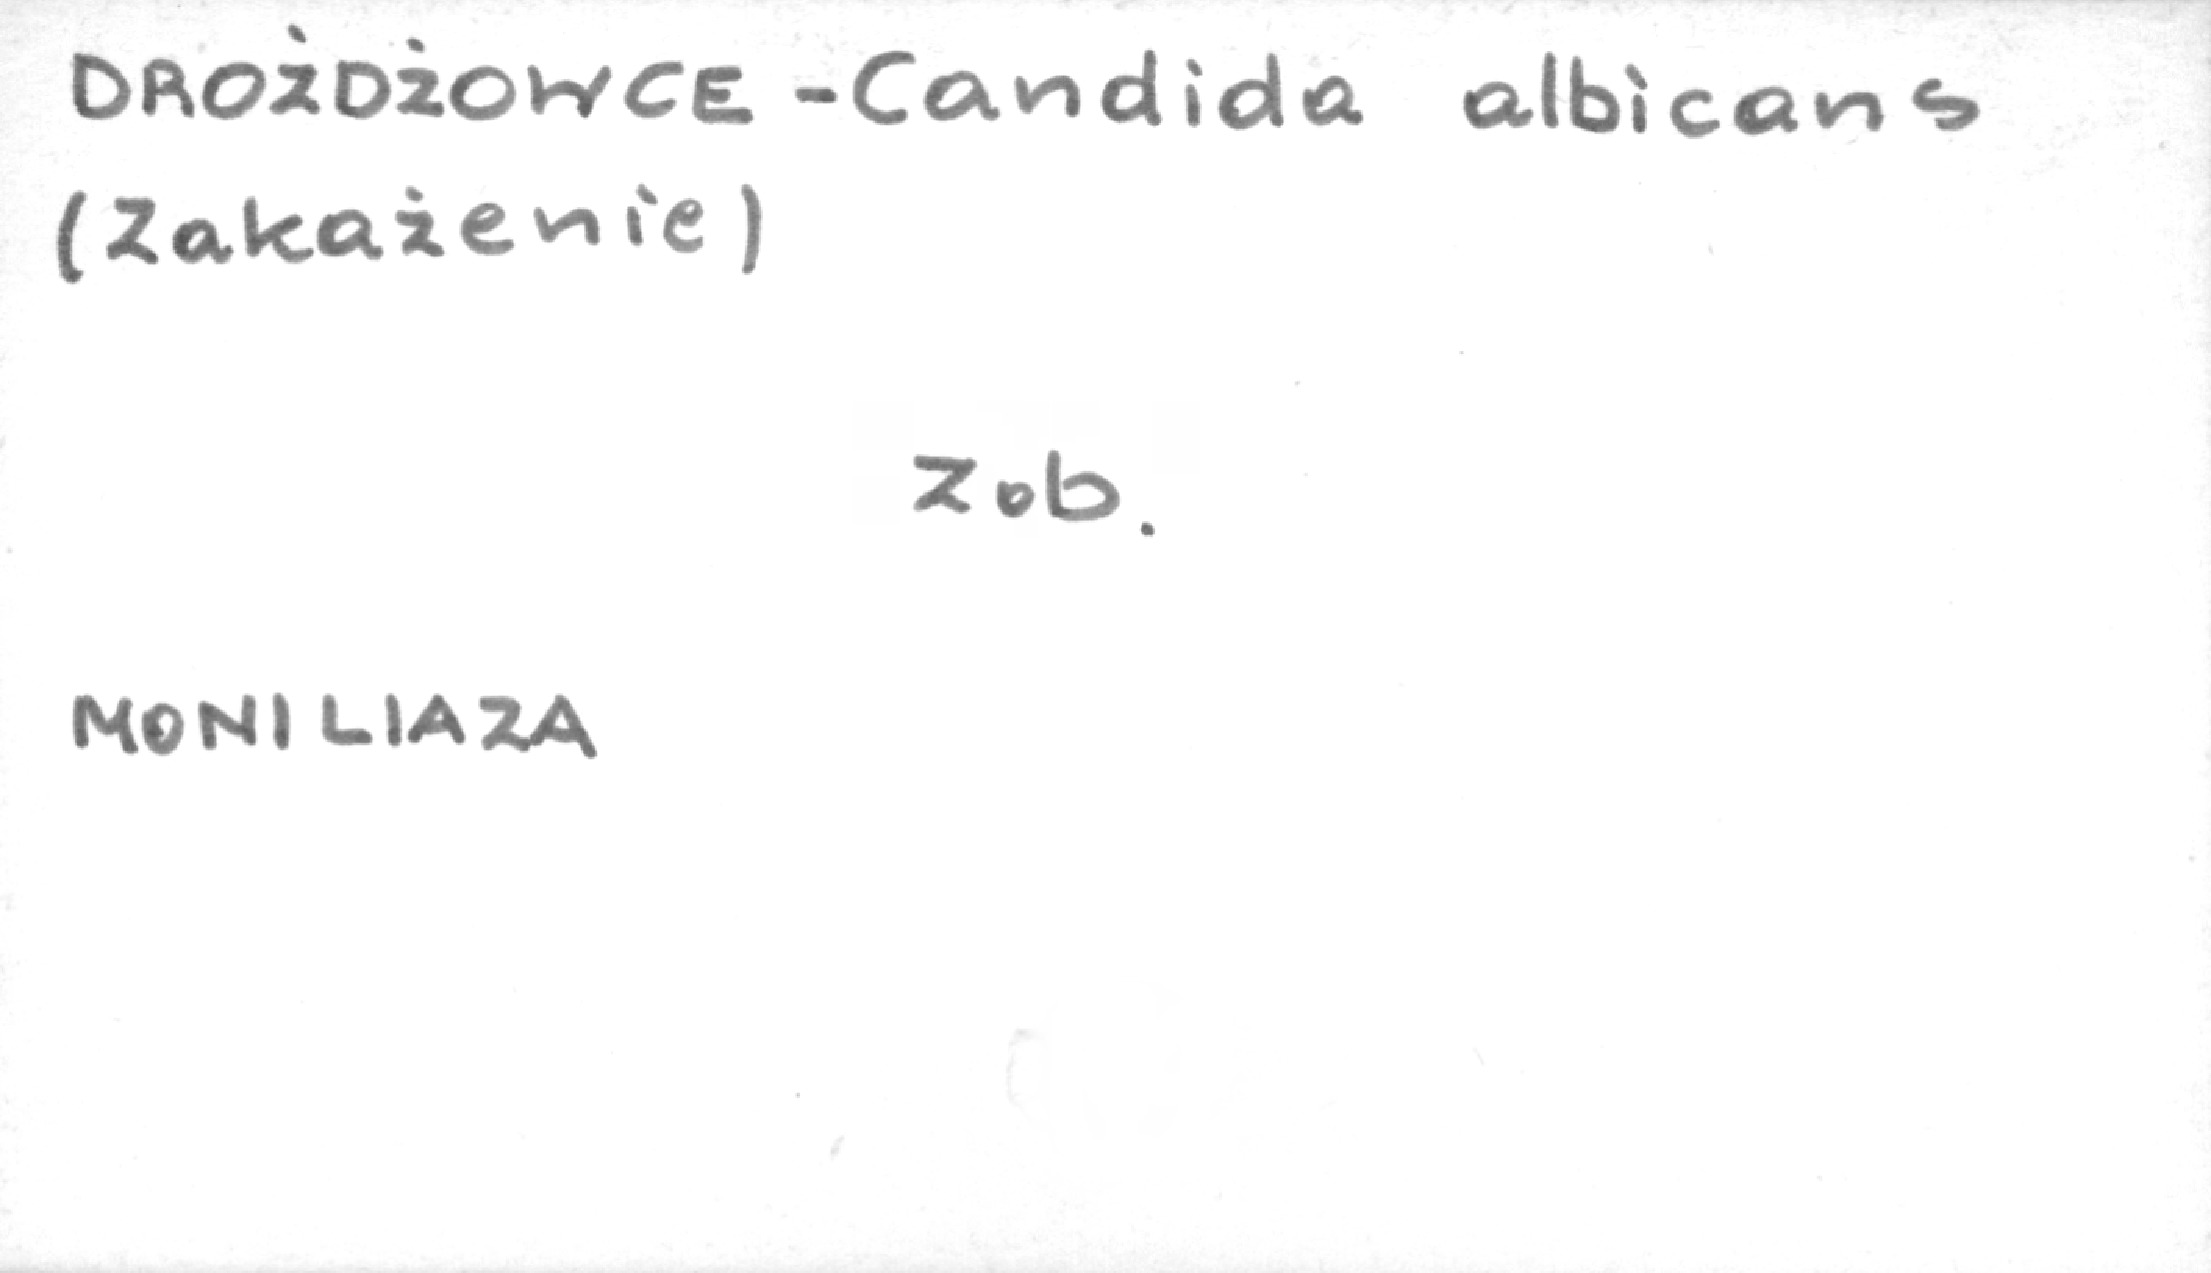 DROŻDŻOWCE - Candida albicans
(Zakażenie)
Zob.
MONILIAZA